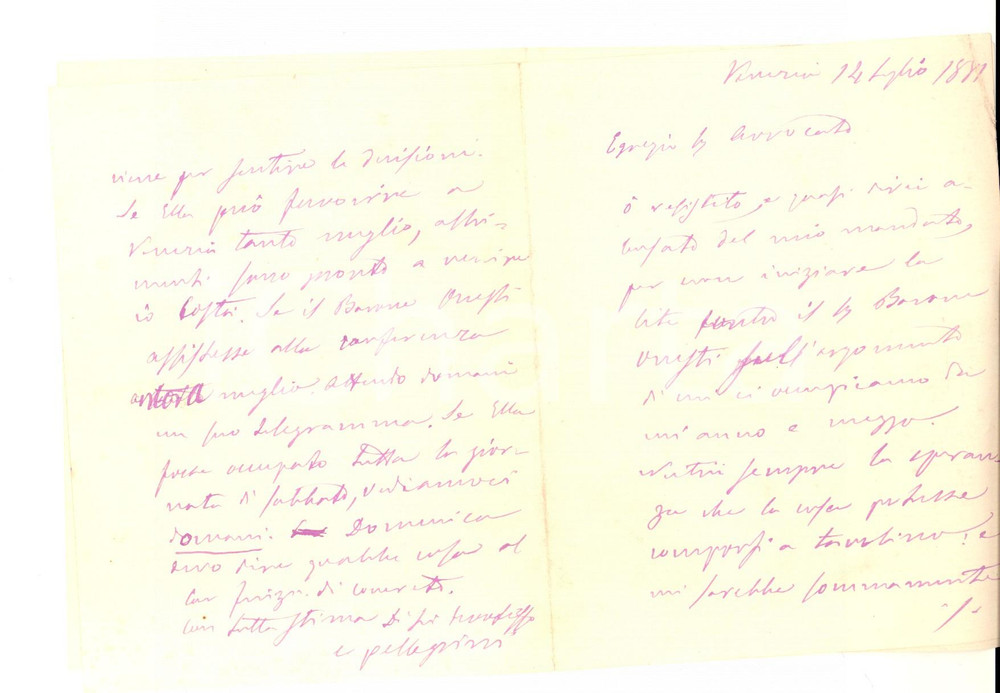 Venezia 14 Luglio 1881
Egregio Sr Avvocato
ò resistito, e quasi direi a-
busato del mio mandato,
per non iniziare la
lite contro il Sr Barone
Onesti sull'argomento
di cui ci occupiamo da
un anno e mezzo.
Nutrii sempre la speran-
za che la cosa potesse
comporsi a tavolino, e
mi sarebbe sommamente
./.
viene per sentire le decisioni.
Se Ella può favorire a
Venezia tanto meglio, altri-
menti sono pronto a venire
io costì. Se il Barone Onesti
assistesse alla conferenza
ancora meglio. Attendo domani
un suo telegramma. Se Ella
fosse occupato tutta la gior-
nata di sabbato, vediamoci
domani. Domenica
devo dire qualche cosa al
di concreto.
con tutta stima Di Lei
C Pellegrini